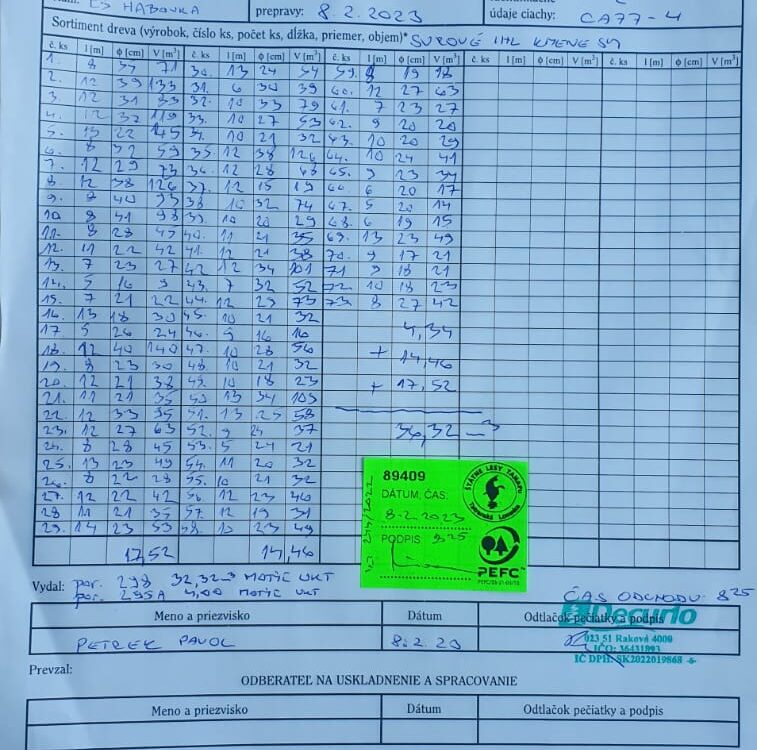 LS HABOVKA
prepravy: 8.2.2023
údaje ciachy: CA77-4
Sortiment dreva (výrobok, číslo ks, počet ks, dĺžka, priemer, objem)* SUROVÉ IHL KMENE SM
č. ks l [m] ϕ [cm] V [m³] č. ks l [m] ϕ [cm] V [m³] č. ks l [m] ϕ [cm] V [m³] č. ks l [m] ϕ [cm] V [m³] č. ks l [m] ϕ [cm] V [m³]
1. 8 71 30. 13 24 54 59. 19 18
2. 12 39 133 31. 6 30 39 60. 12 27 63
3. 12 31 32. 10 33 79 61. 7 23 27
4. 12 37 119 33. 10 27 53 62. 9 20 20
5. 13 22 45 34. 10 21 32 63. 10 20 29
6. 8 59 35. 12 38 126 64. 10 24 41
7. 12 29 73 36. 12 28 68 65. 9 23 34
8. 12 38 126 37. 12 15 19 66. 6 20 17
9. 8 40 93 38 10 32 74 67. 5 20 14
10 8 41 98 39. 10 20 29 68. 6 19 15
11. 8 28 45 40. 11 21 35 69. 13 23 49
12. 11 22 42 41. 12 21 38 70. 9 17 21
13. 7 23 27 42 12 34 101 71 9 18 21
14. 5 16 9 43. 7 32 52 72. 10 18 23
15. 7 21 22 44. 12 29 73 73. 8 27 42
16. 13 18 30 45. 10 21 32
17 5 26 24 46. 9 16 16 4,34
18. 12 40 140 47. 10 28 56 + 14,46
19. 8 23 30 48. 10 21 32
20. 12 21 38 49. 10 18 23 + 17,52
21. 11 21 35 50 13 34 109
22. 12 33 95 51. 13 25 58
23. 12 27 63 52. 9 24 37 36,32 m³
24. 8 28 45 53. 5 24 21
25. 13 23 49 54. 11 20 32
26. 8 22 28 55. 10 21 32
27. 12 22 42 56. 12 23 46
28 11 21 35 57. 12 19 31
29. 14 23 53 58. 10 23 49
17,52 14,46
89409
DÁTUM, ČAS.
8.2.2023
PODPIS 825
ŠTÁTNE LESY TANAPU
Tatranská Lomnica
PEFC™
Vydal: por. 298 32,32 m³ MOTIC UKT
por. 295A 4,00 MOTIC UKT
ČAS ODCHODU: 8 25
Meno a priezvisko Dátum Odtlačok pečiatky a podpis
PETREK PAVOL 8.2.23
Decurlo
023 51 Raková 4009
IČO: 36431893
IČ DPH: SK2022019868 -6-
Prevzal:
ODBERATEĽ NA USKLADNENIE A SPRACOVANIE
Meno a priezvisko Dátum Odtlačok pečiatky a podpis